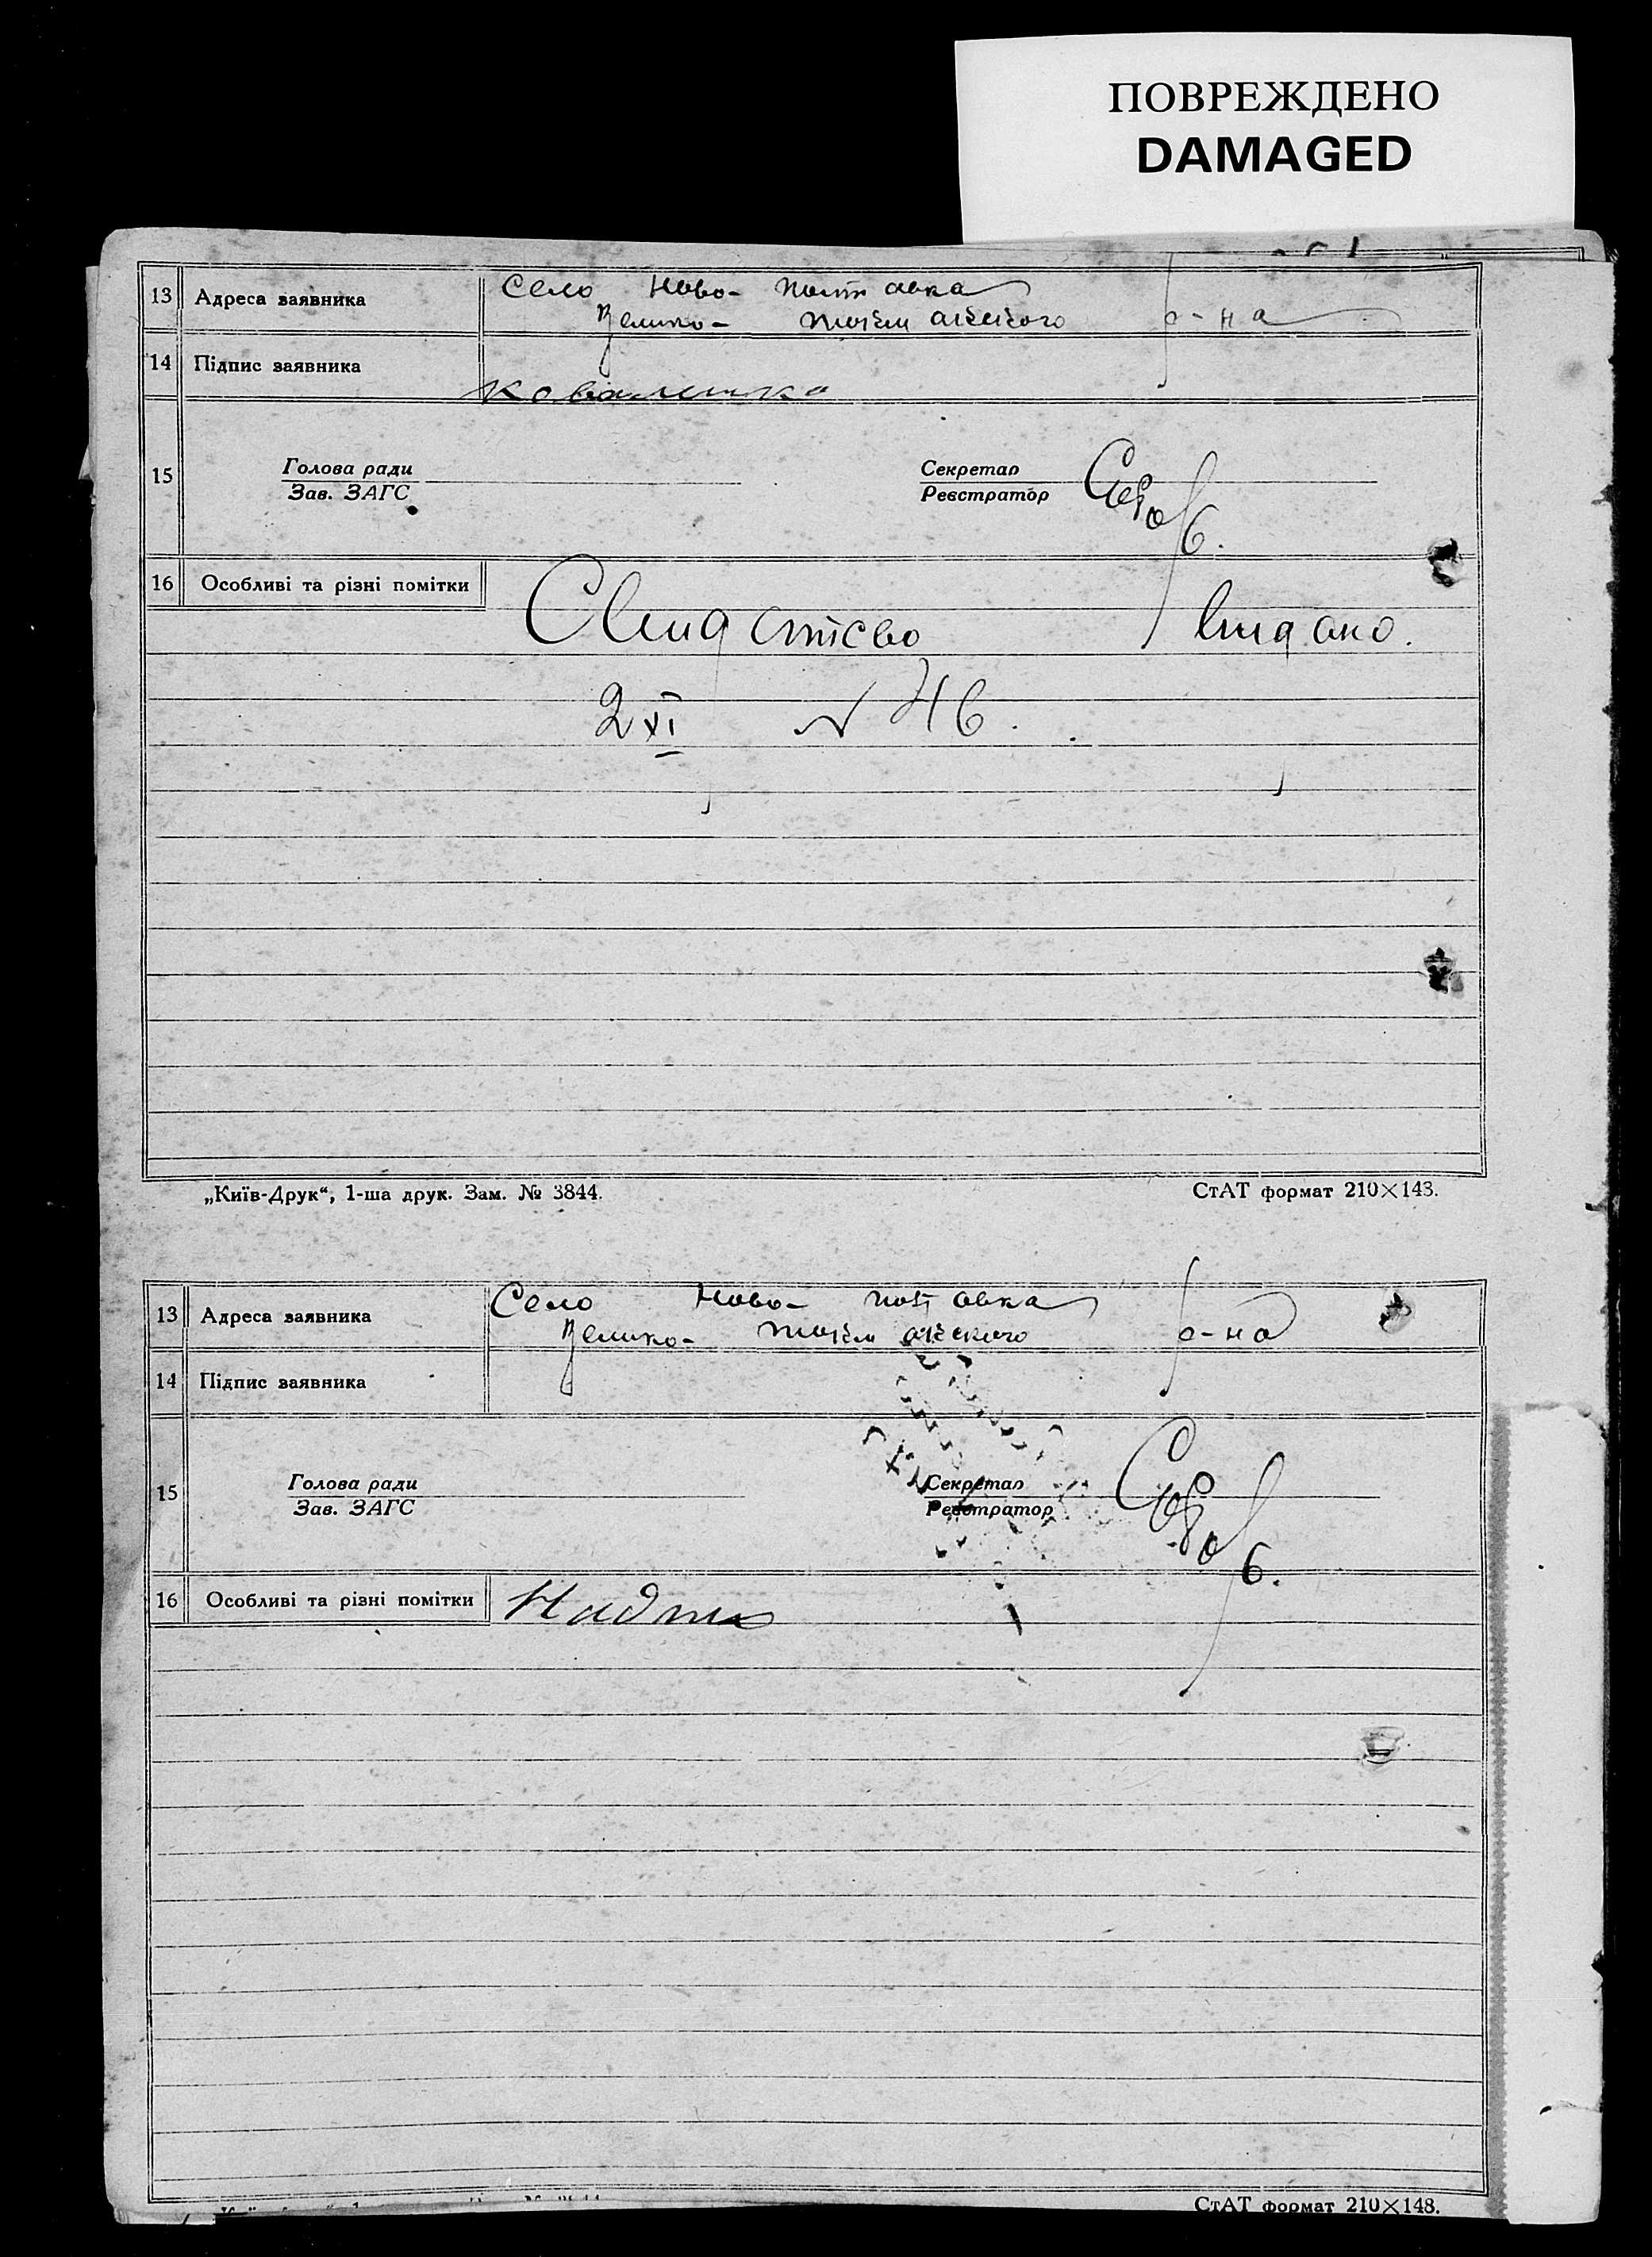 ПОВРЕЖДЕНО
DAMAGED
13 Адреса заявника Село Ново-Полтавка
Велико-Токмакського р-на
14 Підпис заявника Коваленко
15 Голова ради Секретар
Зав. ЗАГС Реєстратор
16 Особливі та різні помітки
Свидатство видано.
2 XI N 46.
„Київ-Друк“, 1-ша друк. Зам. № 3844. СтАТ формат 210×143.
13 Адреса заявника Село Ново-Полтавка
Велико-Токмакського р-на
14 Підпис заявника
15 Голова ради Секретар
Зав. ЗАГС Реєстратор
16 Особливі та різні помітки
СтАТ формат 210×148.